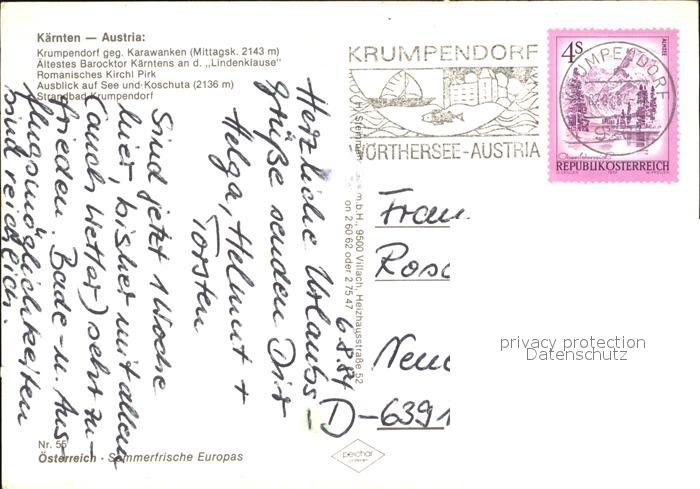 Kärnten — Austria:
Krumpendorf geg. Karawanken (Mittagsk. 2143 m)
Ältestes Barocktor Kärntens an d. „Lindenklause"
Romanisches Kirchl Pirk
Ausblick auf See und Koschuta (2136 m)
Strandbad Krumpendorf
KRUMPENDORF
WÖRTHERSEE-AUSTRIA
4S
ALMSEE
REPUBLIK ÖSTERREICH
6.8.84
Herzliche Urlaubs-
grüße senden Dir
Helga, Helmut +
Torsten
Sind jetzt 1 Woche
hier, bisher mit allem
(auch Wetter) sehr zu-
frieden. Bade- u. Aus-
flugsmöglichkeiten
sind reichlich.
m.b.H., 9500 Villach, Heizhausstraße 52
on 2 60 62 oder 2 75 47
Frau
Rosa
D-6391
privacy protection
Datenschutz
Nr. 55
Österreich · Sommerfrische Europas